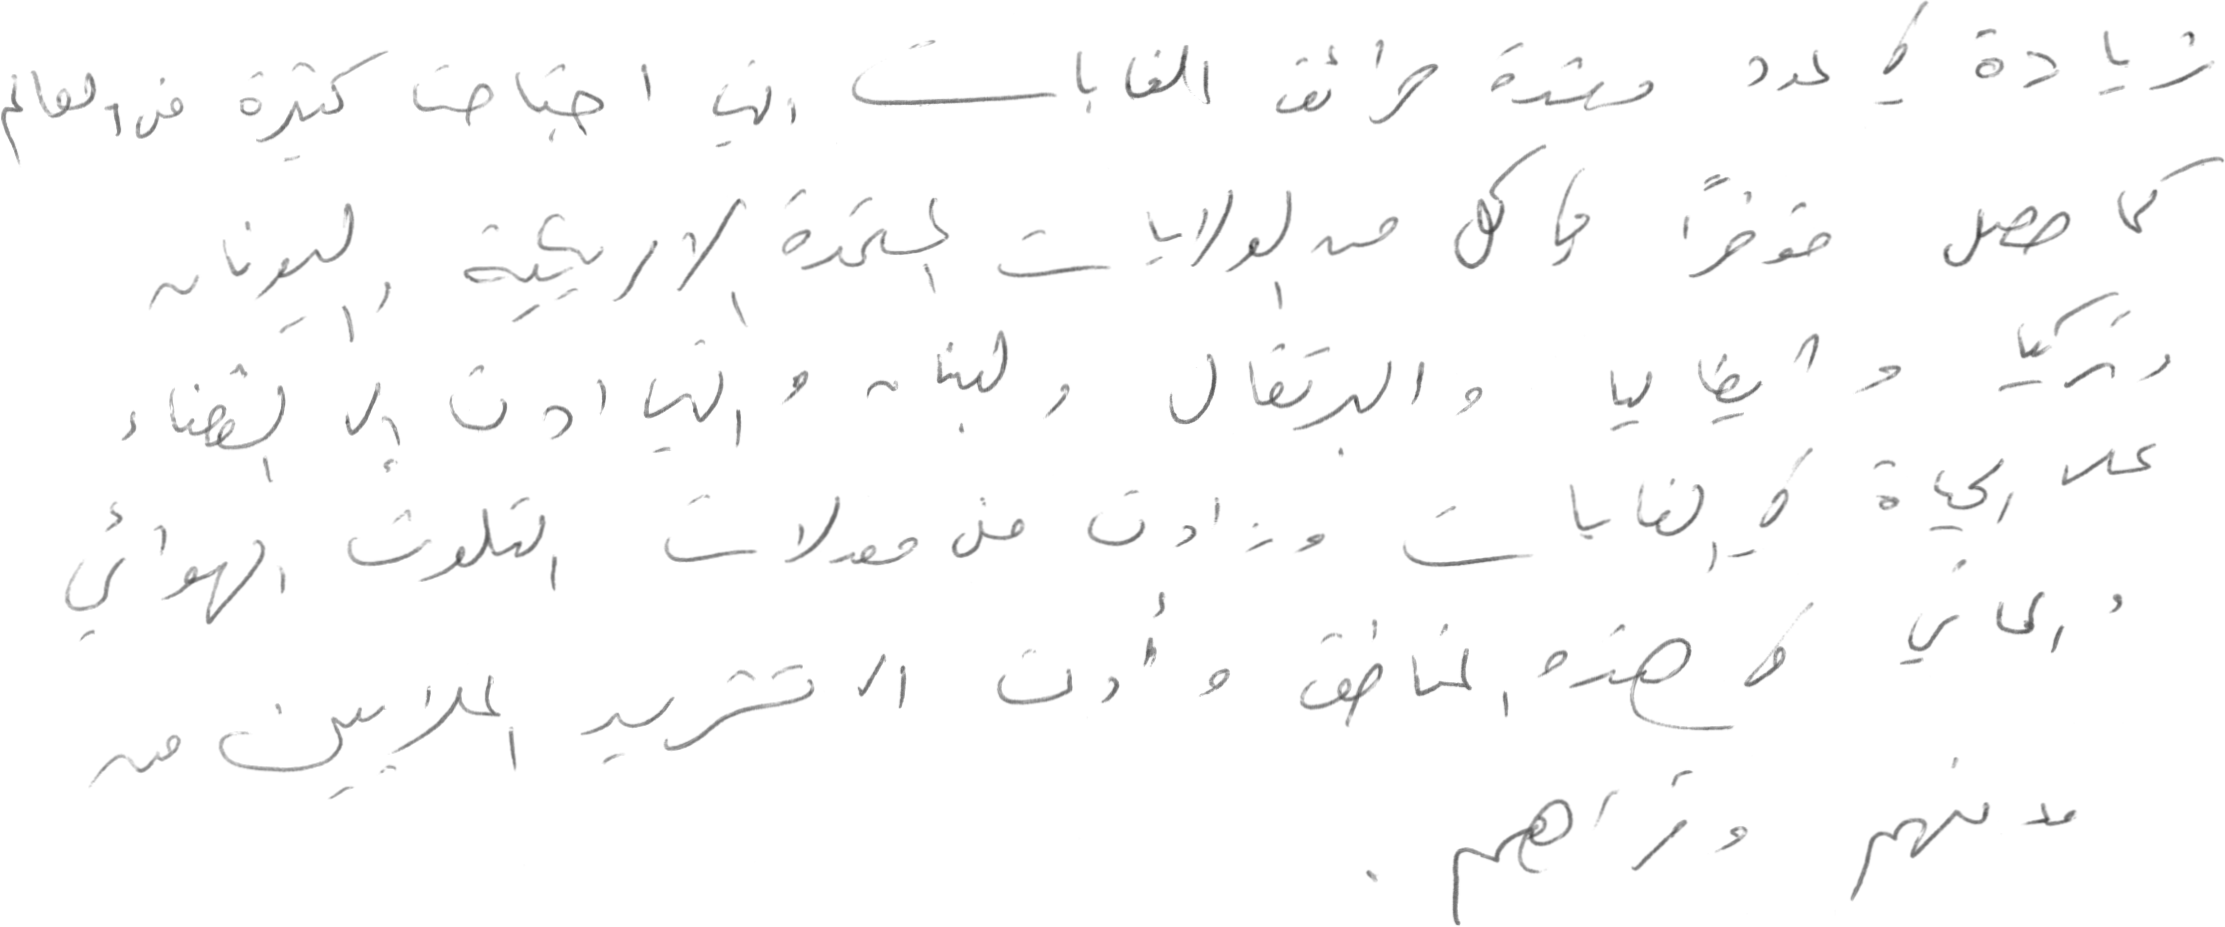 زيادة في عدد وشدة حرائق الغابات التي اجتاحت كثيرة من العالم
كما حصل مؤخرًا في كل من الولايات المتحدة الامريكية واليونان
وتركيا و ايطاليا والبرتقال ولبنان والتي ادت إلى القضاء
على الحياة في الغابات وزادت من معدلات التلوث الهوائي
والمائي في هذه المناطق و أدت الى تشريد الملايين من
مدنهم وقراهم .